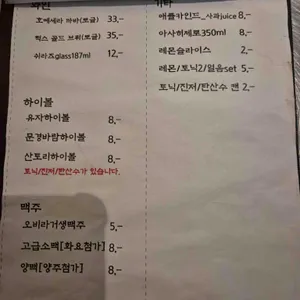 와인
호세쎄라 까바(토글) 33,-
벅스 골드 브뤼(토글) 35,-
쉬라즈glass187ml 12,-
하이볼
유자하이볼 8,-
문경바람하이볼 8,-
산토리하이볼 8,-
토닉/진저/탄산수가 있습니다.
맥주
오비라거생맥주 5,-
고급소맥[화요첨가] 8,-
양맥[양주첨가] 8,-
기타
애플카인드_사과juice 8,-
아사히제로350ml 8,-
레몬슬라이스 2,-
레몬/토닉2/얼음set 5,-
토닉/진저/탄산수 캔 2,-